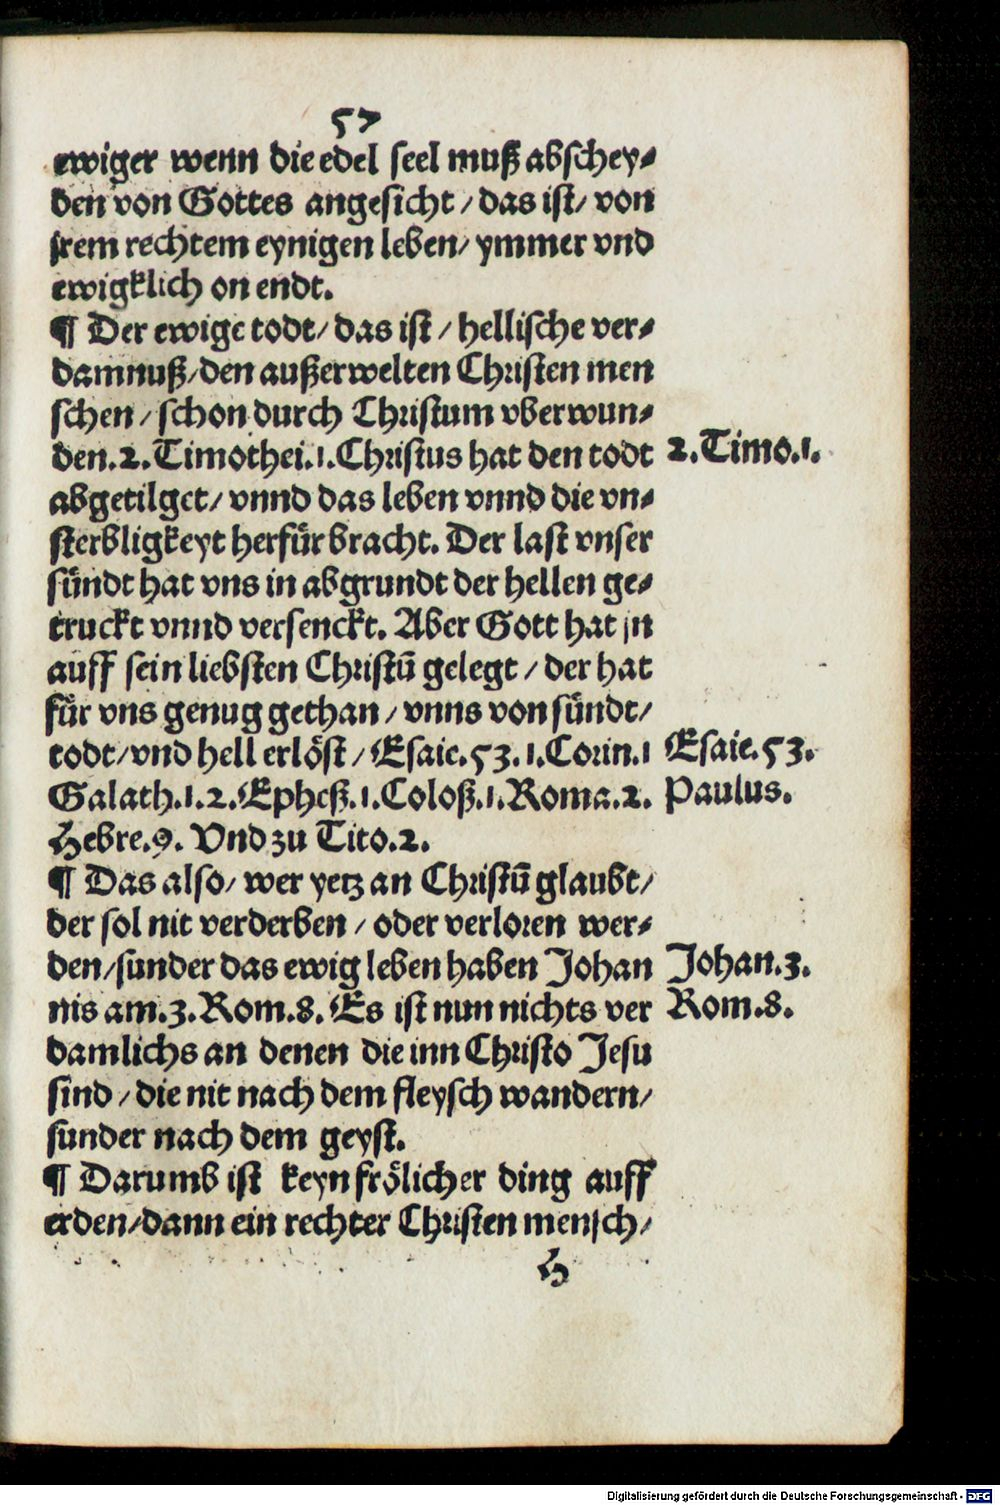 57
ewiger wenn die edel seel muß abschey⸗
den von Gottes angesicht / das ist / von
jrem rechtem eynigen leben / ymmer vnd
ewigklich on endt.
¶ Der ewige todt / das ist / hellische ver⸗
damnuß / den außerwelten Christen men
schen / schon durch Christum vberwun⸗
den. 2. Timothei. 1. Christus hat den todt
2. Timo. 1.
abgetilget / vnnd das leben vnnd die vn⸗
sterbligkeyt herfür bracht. Der last vnser
sündt hat vns in abgrundt der hellen ge⸗
truckt vnnd versenckt. Aber Gott hat jn
auff sein liebsten Christū gelegt / der hat
für vns genug gethan / vnns von sündt /
todt / vnd hell erlöst / Esaie. 53. 1. Corin. 1
Esaie. 53.
Galath. 1. 2. Epheß. 1. Coloß. 1. Roma. 2.
Paulus.
Hebre. 9. Vnd zu Tito. 2.
¶ Das also / wer yetz an Christū glaubt /
der sol nit verderben / oder verloren wer⸗
den / sunder das ewig leben haben Johan
Johan. 3.
nis am. 3. Rom. 8. Es ist nun nichts ver
Rom. 8.
damlichs an denen die inn Christo Jesu
sind / die nit nach dem fleysch wandern /
sunder nach dem geyst.
¶ Darumb ist keyn frölicher ding auff
erden / dann ein rechter Christen mensch /
H
Digitalisierung gefördert durch die Deutsche Forschungsgemeinschaft - DFG